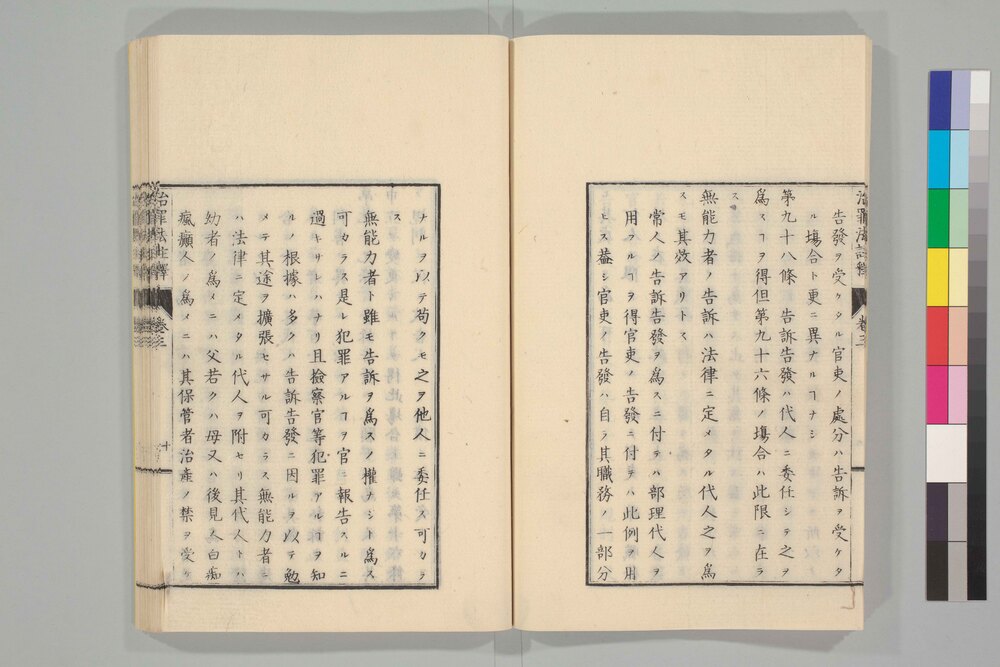 治罪法註釋 卷三
告發ヲ受ケタル官吏ノ處分ハ告訴ヲ受ケタ
ル塲合ト更ニ異ナルヿナシ
第九十八條 告訴告發ハ代人ニ委任シテ之ヲ
爲スヿヲ得但第九十六條ノ塲合ハ此限ニ在ラ
ス
無能力者ノ告訴ハ法律ニ定メタル代人之ヲ爲
スモ其效アリトス
常人ノ告訴告發ヲ爲スニ付テハ部理代人ヲ
用フルヿヲ得官吏ノ告發ニ付テハ此例ヲ用
ヒス葢シ官吏ノ告發ハ自ラ其職務ノ一部分
ナルヲ以テ苟クモ之ヲ他人ニ委任ス可カラ
ス
無能力者ト雖モ告訴ヲ爲スノ權ナシト爲ス
可カラス是レ犯罪アルヿヲ官ニ報告スルニ
過キサレハナリ且撿察官等犯罪アルヿヲ知
ルノ根據ハ多クハ告訴告發ニ因ルヲ以テ勉
メテ其途ヲ擴張セサル可カラス無能力者ニ
ハ法律ニ定メタル代人ヲ附セリ其代人トハ
幼者ノ爲メニハ父若クハ母又ハ後見人白痴
瘋癲人ノ爲メニハ其保管者治產ノ禁ヲ受ケ
治罪法註釋 卷三 十